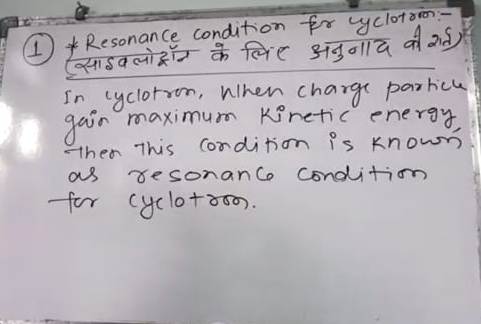 ① * Resonance condition for cyclotron:-
(साइक्लोट्रॉन के लिए अनुनाद की शर्त)
In cyclotron, When charge particle
gain maximum Kinetic energy
then This condition is known
as resonance condition
for cyclotron.